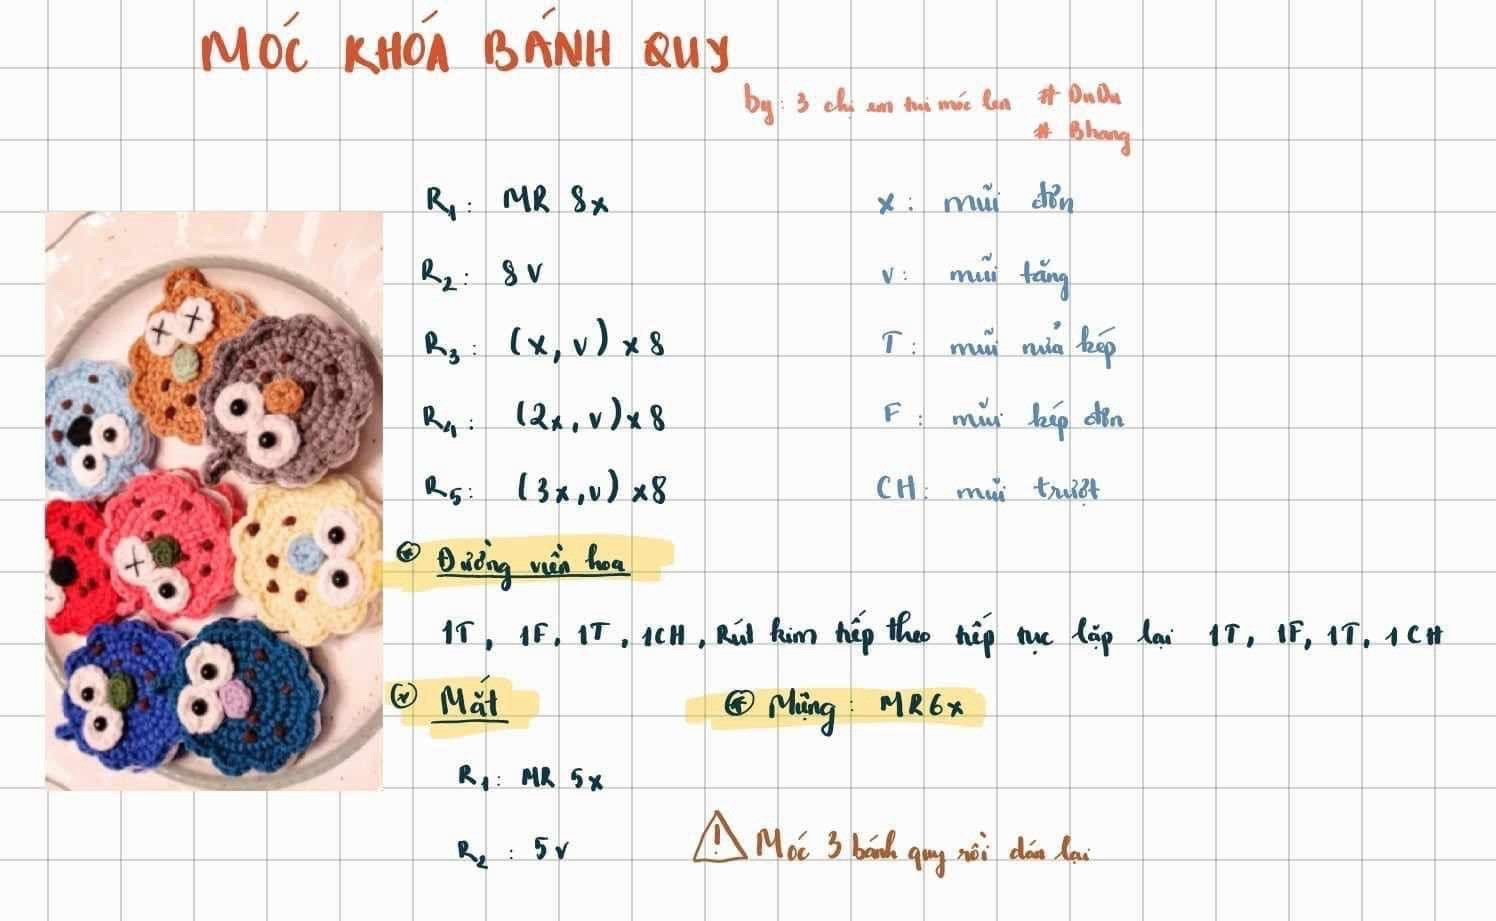 MÓC KHÓA BÁNH QUY
by: 3 chị em tui móc len # DuDu
# Bhang
R1: MR 8x
x: mũi đơn
R2: 8v
v: mũi tăng
R3: (x, v) x 8
T: mũi nửa kép
R4: (2x, v) x 8
F: mũi kép đơn
R5: (3x, v) x 8
CH: mũi trượt
Đường viền hoa
1T, 1F, 1T, 1CH, Rút kim tiếp theo tiếp tục lặp lại 1T, 1F, 1T, 1CH
Mắt
Miệng: MR 6x
R1: MR 5x
R2: 5v
! Móc 3 bánh quy rồi dán lại